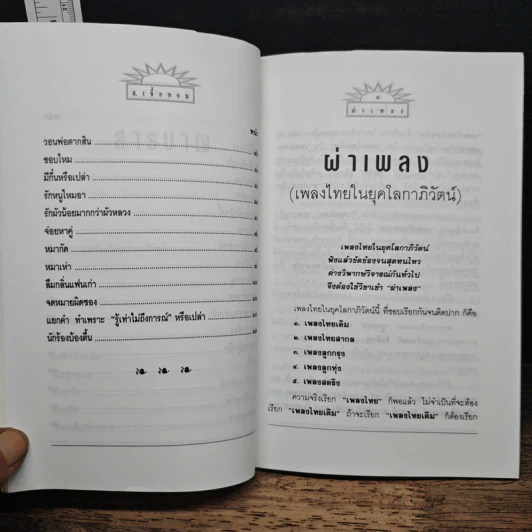 ส.เชื้อหอม
หน้า
วอนพ่อตากสิน
ชอบไหม
มีกึ๋นหรือเปล่า
รักหนูไหมอา
รักผัวน้อยมากกว่าผัวหลวง
จ๋อยหาคู่
หมากัด
หมาเห่า
ลืมกลิ่นแฟนเก่า
จดหมายผิดซอง
แยกคำ ทำเพราะ "รู้เท่าไม่ถึงการณ์" หรือเปล่า
นักร้องบ้องตื้น
ผ่าเพลง
ผ่าเพลง
(เพลงไทยในยุคโลกาภิวัตน์)
เพลงไทยในยุคโลกาภิวัตน์
ฟังแล้วขัดข้องจนสุดทนไหว
ต่างวิพากษ์วิจารณ์กันทั่วไป
จึงต้องใช้วิชาเข้า "ผ่าเพลง"
เพลงไทยในยุคโลกาภิวัตน์นี้ ที่ชอบเรียกกันจนติดปาก ก็คือ
๑. เพลงไทยเดิม
๒. เพลงไทยสากล
๓. เพลงลูกกรุง
๔. เพลงลูกทุ่ง
๕. เพลงสตริง
ความจริงเรียก "เพลงไทย" ก็พอแล้ว ไม่จำเป็นที่จะต้อง
เรียก "เพลงไทยเดิม" ถ้าจะเรียก "เพลงไทยเดิม" ก็ต้องเรียก